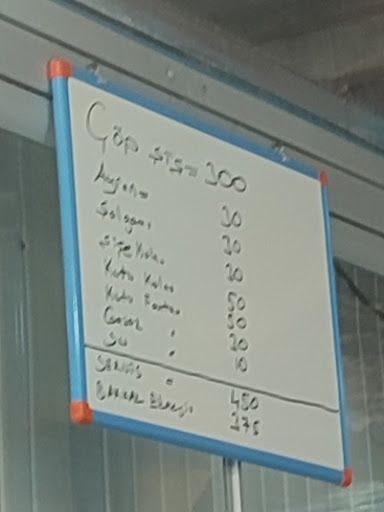 Çöp şiş = 300
Ayran 30
Şalgam 30
Şişe Kola 30
Kutu Kola 50
Kutu Fanta 50
Gazoz " 30
Su " 10
SERVİS " 450
375